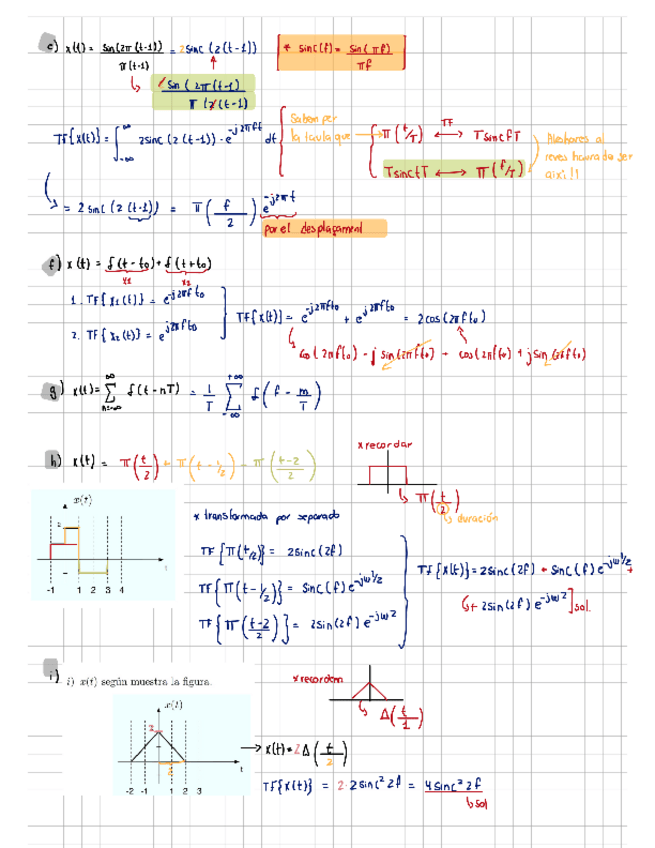 e) x(t) = sin(2π(t-1)) / π(t-1) = 2 sinc(2(t-1))
* sinc(f) = sin(πf) / πf
2 sin(2π(t-1)) / π(2(t-1))
TF{x(t)} = ∫_{-∞}^{∞} 2sinc(2(t-1)) · e^{-j2πft} dt
Π(t/T) ⟷ TF T sinc fT
T sinc tT ⟷ Π(f/T)
= 2 sinc(2(t-1)) = Π(f/2) e^{-j2πf}
por el desplaçament
f) x(t) = δ(t-t₀) + δ(t+t₀)
x₁ x₂
1. TF{x₁(t)} = e^{-j2πft₀}
2. TF{x₂(t)} = e^{j2πft₀}
TF{x(t)} = e^{-j2πft₀} + e^{j2πft₀} = 2cos(2πft₀)
cos(2πft₀) - j sin(2πft₀) + cos(2πft₀) + j sin(2πft₀)
g) x(t) = Σ_{n=-∞}^{∞} δ(t-nT) = 1/T Σ_{-∞}^{+∞} δ(f - m/T)
x recordar
h) x(t) = Π(t/2) + Π(t-1/2) - Π((t-2)/2)
Π(t/2)
duración
x(t)
2
-1 1 2 3 4
t
* transformada por separado
TF{Π(t/2)} = 2sinc(2f)
TF{Π(t-1/2)} = sinc(f) e^{-jω1/2}
TF{Π((t-2)/2)} = 2sin(2f) e^{-jω2}
TF{x(t)} = 2sinc(2f) + sinc(f) e^{-jω1/2} +
+ 2sin(2f) e^{-jω2}] sol.
i)
i) x(t) según muestra la figura.
x recordem
Δ(t/1)
x(t)
2
-2 -1 1 2 3
t
x(t) = 2Δ(t/2)
TF{x(t)} = 2 · 2sinc² 2f = 4sinc² 2f
sol